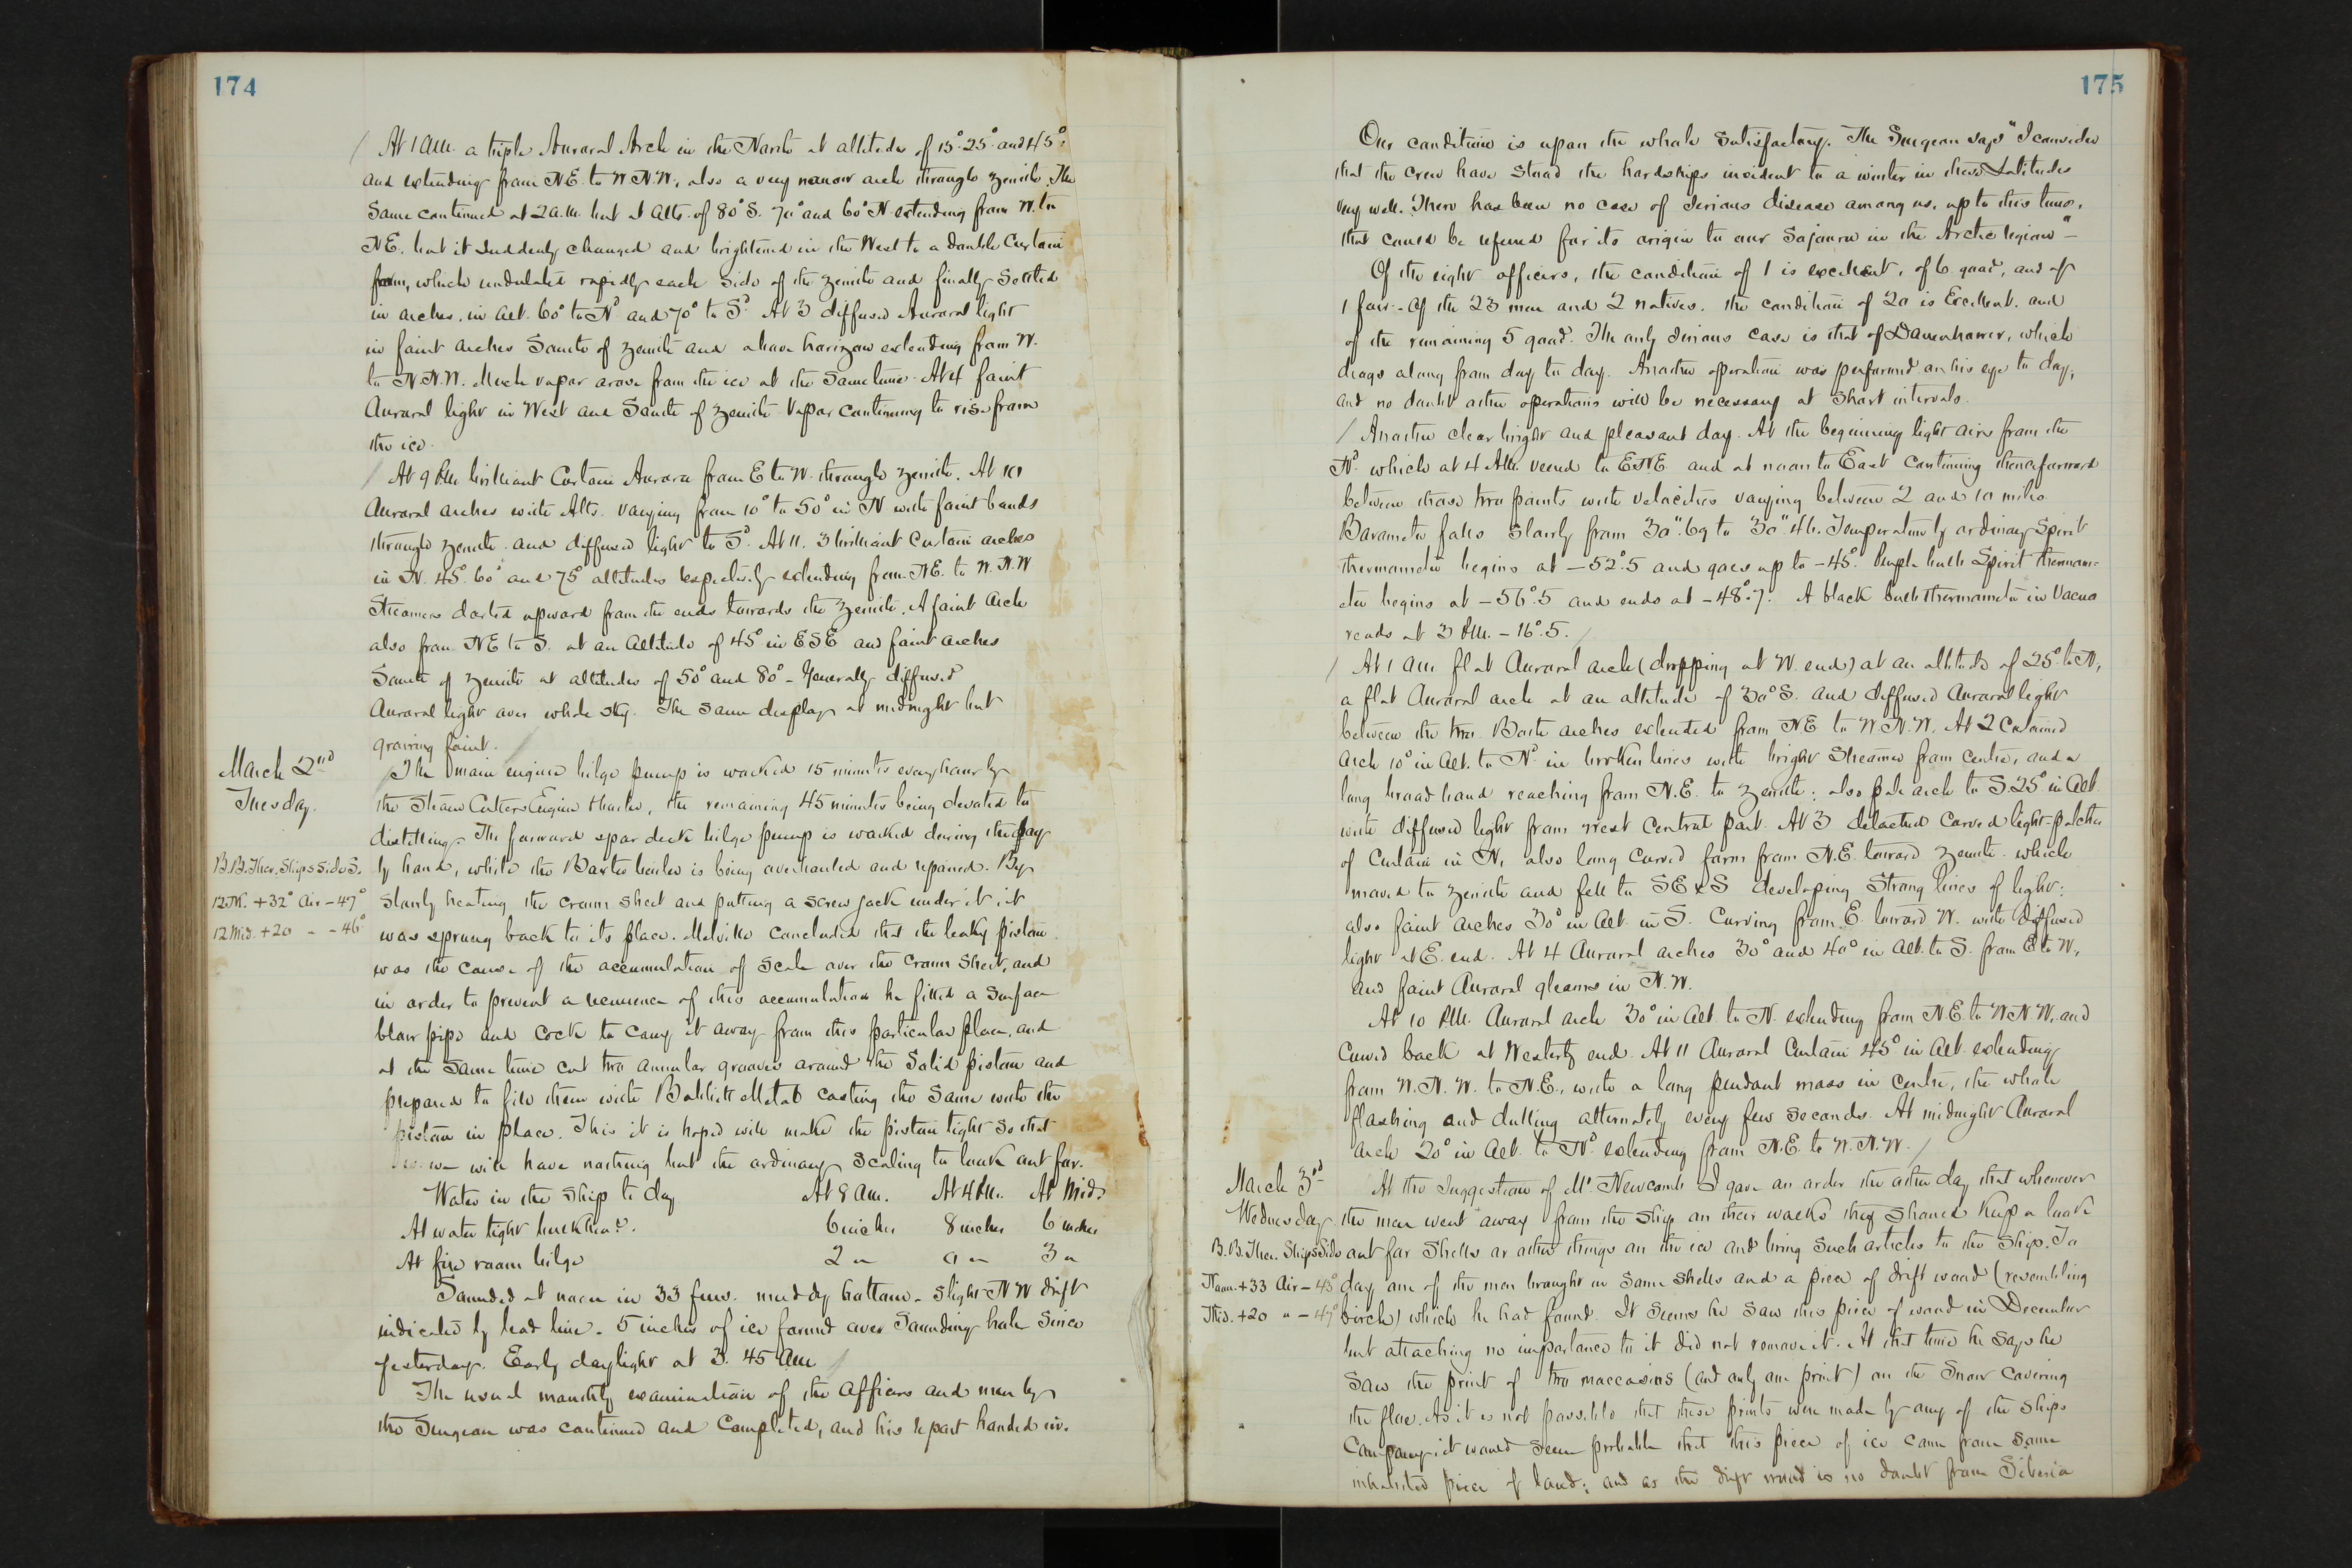 174
At 1 A.M. a triple Auroral Arch in the North at altitudes of 15° 25° and 45°,
and extending from N.E. to W.N.W., also a very narrow arch through zenith. The
same continued at 2 a.m. but at Alts. of 80° S. 70° and 60° N. extending from W. to
N.E. but it suddenly changed and brightened in the West to a double Curtain
form, which undulated rapidly each side of the zenith and finally settled
in arches, in alt. 60° to Nd and 70° to Sd. At 3 diffused Auroral light
in faint arches South of zenith and above horizon extending from W.
to N.N.W. Much vapor arose from the ice at the same time. At 4 faint
Auroral light in West and South of zenith. Vapor continuing to rise from
the ice.
At 9 P.M. brilliant Curtain Aurora from E to W. through zenith. At 10
Auroral arches with Alts. varying from 10° to 50° in N. with faint bands
through zenith and diffused light to Sd. At 11. 3 brilliant Curtain arches
in N. 45°. 60° and 75° altitudes respectively extending from N.E. to W.N.W
Streamers darted upward from the ends towards the zenith. A faint arch
also from NE to S. at an altitude of 45° in ESE and faint arches
South of zenith at altitudes of 50° and 80° - Generally diffused
Auroral light over whole sky. The same display at midnight but
growing faint.
March 2nd
Tuesday.
The main engine bilge pump is worked 15 minutes every hour by
the Steam Cutters Engine & boiler, the remaining 45 minutes being devoted to
distilling. The forward spar deck bilge pump is worked during the day
B.B. Ther. Ships Side S.
by hand, while the Baxter boiler is being overhauled and repaired. By
12 M. +32° Air -47°
slowly heating the crown sheet and putting a screw jack under it it
12 Mid. +20 " -46°
was sprung back to its place. Melville concluded that the leaky piston
was the cause of the accumulation of scale over the crown sheet, and
in order to prevent a recurrence of this accumulation he fitted a surface
blow pipe and cock to carry it away from this particular place, and
at the same time cut two annular grooves around the solid piston and
prepared to fill them with Babbitt Metal casting the same with the
piston in place. This it is hoped will make the piston tight so that
we will have nothing but the ordinary scaling to look out for.
Water in the ship to day At 8 a.m. At 4 P.M. At Mid.
At water tight bulkhead. 6 inches 8 inches 6 inches
At fire room bilge 2 " 0 " 3 "
Sounded at noon in 33 fms. muddy bottom - slight N W drift
indicated by lead line. 5 inches of ice formed over sounding hole since
yesterday. Early daylight at 3.45 a.m.
The usual monthly examination of the officers and men by
the Surgeon was continued and completed, and his report handed in.
175
Our condition is upon the whole satisfactory. The Surgeon says "I consider
that the crew have stood the hardships incident to a winter in these Latitudes
very well. There has been no case of serious disease among us, up to this time,
that could be referred for its origin to our sojourn in the Arctic regions" -
Of the eight officers, the condition of 1 is excellent, of 6 good, and of
1 fair - Of the 23 men and 2 natives, the condition of 20 is Excellent, and
of the remaining 5 good. The only serious case is that of Danenhower, which
drags along from day to day. Another operation was performed on his eye to day,
and no doubt other operations will be necessary at short intervals.
Another clear bright and pleasant day. At the beginning light airs from the
Nd. which at 4 A.M. veered to ENE and at noon to East continuing thenceforward
between those two points with velocities varying between 2 and 10 miles.
Barometer falls slowly from 30".69 to 30".46. Temperature by ordinary Spirit
thermometer begins at -52°.5 and goes up to -45°. Purple bulb Spirit thermom-
eter begins at -56°.5 and ends at -48°.7. A black bulb thermometer in Vacuo
reads at 3 P.M. -16°.5.
At 1 a.m. flat Auroral arch (dropping at W. end) at an altitude of 25° to N,
a flat Auroral arch at an altitude of 30° S. and diffused Auroral light
between the two. Both arches extended from NE to W.N.W. At 2 Colored
arch 10° in Alt. to Nd. in broken lines with bright streamer from centre, and a
long broad band reaching from N.E. to zenith; also pale arch to S. 25° in alt
with diffused light from West Central part. At 3 detached Curved light-patches
of Curtain in N, also long curved form from N.E. toward zenith. which
moved to zenith and fell to SE & S developing strong lines of light;
also faint arches 30° in alt in S. Curving from E toward W. with diffused
light at E. end. At 4 Auroral arches 30° and 40° in alt. to S. from E to W,
and faint Auroral gleams in N.W.
At 10 P.M. Auroral arch 30° in alt. to N. extending from N.E. to W.N.W. and
Curved back at Westerly end. At 11 Auroral Curtain 45° in alt. extending
from W.N.W. to N.E., with a long pendant mass in centre, the whole
flashing and dulling alternately every few seconds. At midnight Auroral
arch 20° in alt. to Nd. extending from N.E. to W.N.W.
March 3rd
At the suggestion of Mr. Newcomb I gave an order the other day that whenever
Wednesday
the men went away from the ship on their walks they should keep a look
B.B. Ther. Ships Side
out for shells or other things on the ice and bring such articles to the ship. To
Noon +33 Air -43°
day one of the men brought in some shells and a piece of drift wood (resembling
Mid. +20 " -47°
birch) which he had found. It seems he saw this piece of wood in December
but attaching no importance to it did not remove it. At that time he says he
saw the print of two moccasins (and only one print) on the snow covering
the floe. As it is not possible that these prints were made by any of the ships
company it would seem probable that this piece of ice came from some
inhabited piece of land; and as the drift wood is no doubt from Siberia